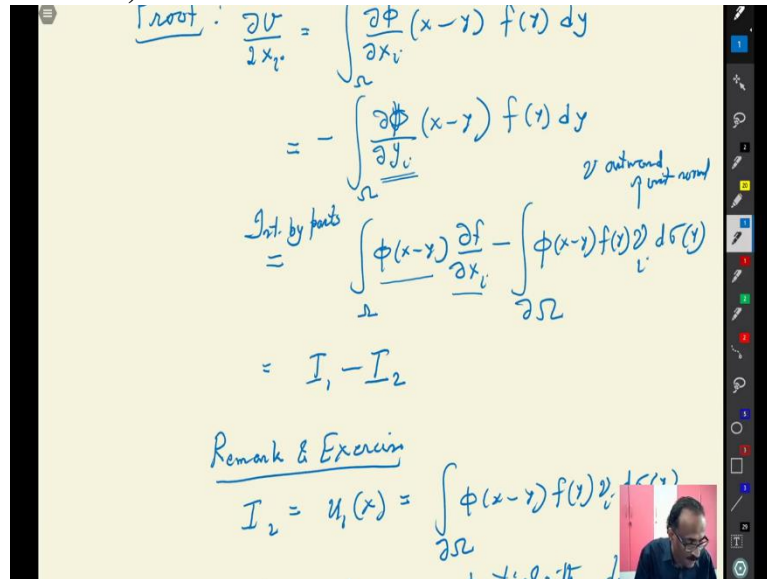 Proof : ∂v/∂x_i = ∫_Ω ∂Φ/∂x_i (x-y) f(y) dy
= - ∫_Ω ∂Φ/∂y_i (x-y) f(y) dy
ν outward
unit normal
Int. by parts
= ∫_Ω ϕ(x-y) ∂f/∂x_i - ∫_∂Ω ϕ(x-y) f(y) ν_i dσ(y)
= I_1 - I_2
Remark & Exercise
I_2 = u_1(x) = ∫_∂Ω ϕ(x-y) f(y) ν_i dσ(y)